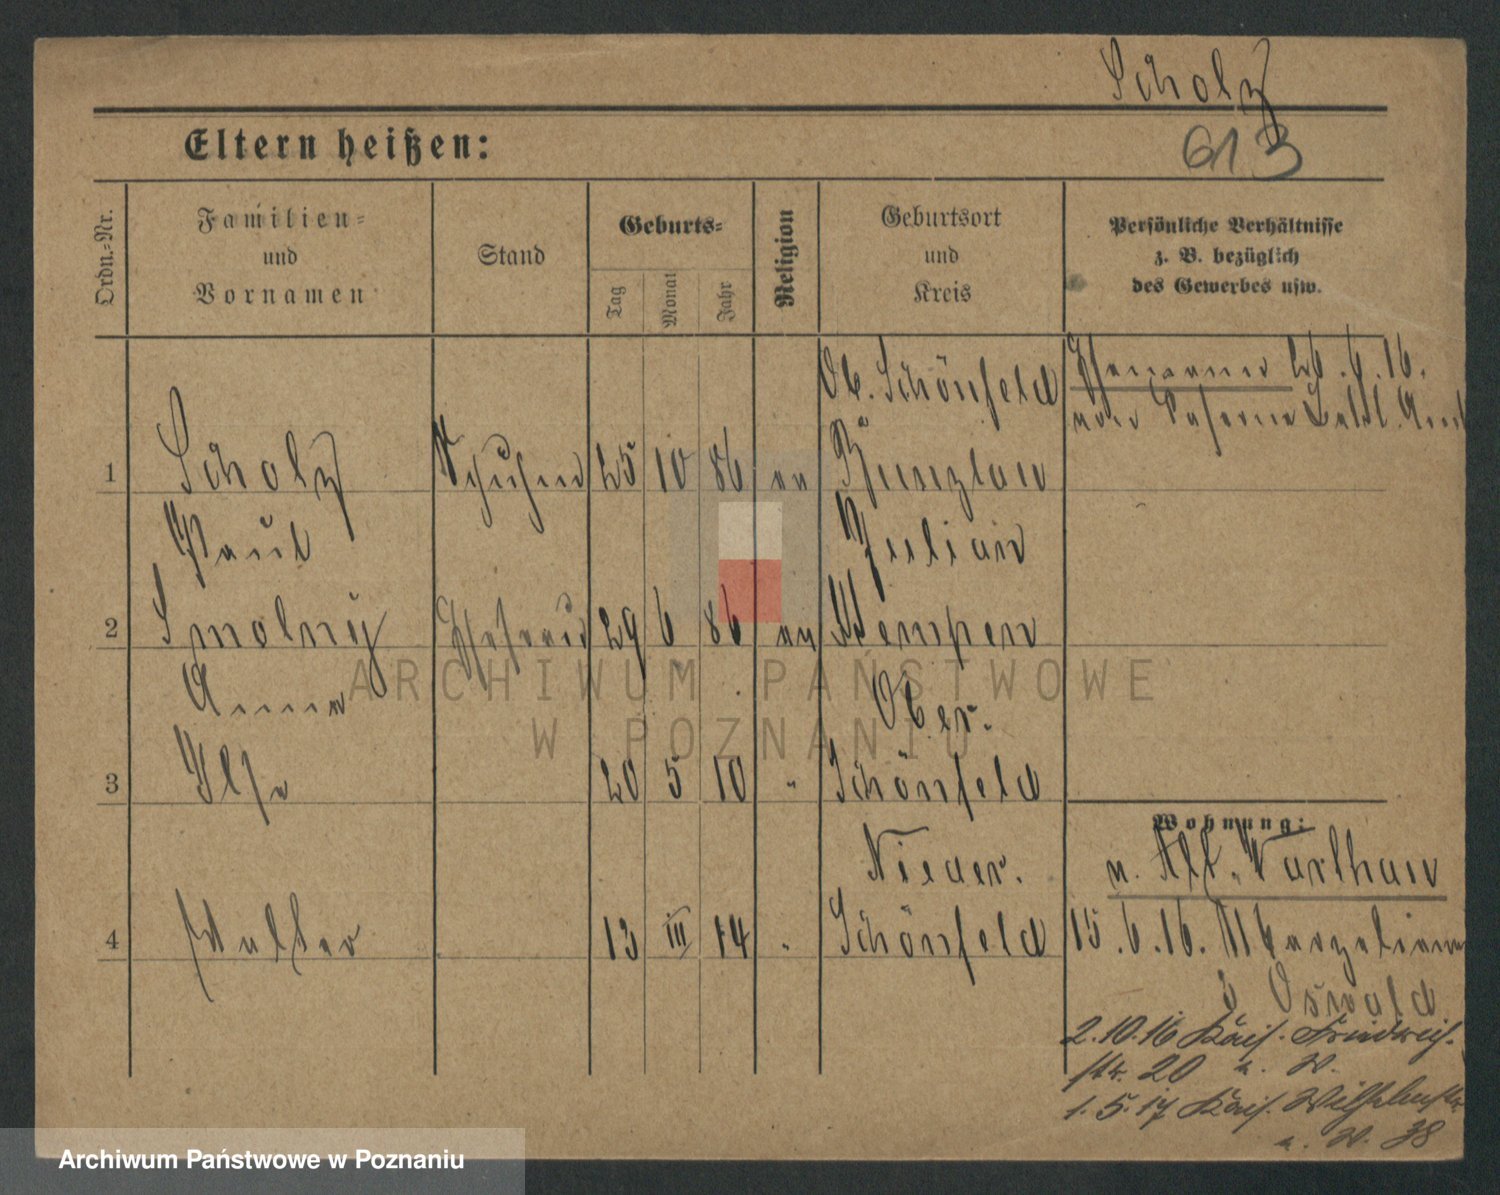 Scholz
Eltern heißen:
613
Ordn.-Nr.
Familien-
und
Vornamen
Stand
Geburts-
Tag
Monat
Jahr
Religion
Geburtsort
und
Kreis
Persönliche Verhältnisse
z. B. bezüglich
des Gewerbes usw.
Ob. Schönfeld
26.6.16.
1 Scholz 25 10 86 ev Bunzlau
Paul
2 Smolny Ehefrau 29 6 86 ev Kempen
Anna Ober.
3 Ilse 20 5 10 " Schönfeld
Wohnung:
Nieder.
4 Walter 13 III 14 " Schönfeld
15.6.16.
b Oswald
2.10.16 Kais. Friedrich-
str. 20 a. W.
1.5.17 Kais. Wilhelmstr
a. W. 38
ARCHIWUM PAŃSTWOWE
W POZNANIU
Archiwum Państwowe w Poznaniu